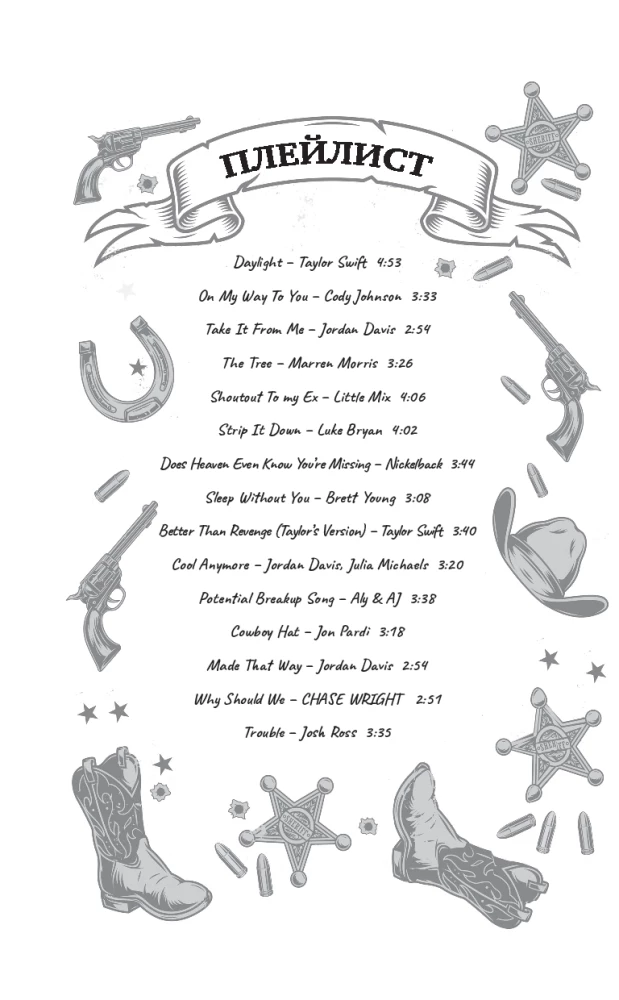 ПЛЕЙЛИСТ
SHERIFF
Daylight – Taylor Swift 4:53
On My Way To You – Cody Johnson 3:33
Take It From Me – Jordan Davis 2:54
The Tree – Marren Morris 3:26
Shoutout To my Ex – Little Mix 4:06
Strip It Down – Luke Bryan 4:02
Does Heaven Even Know You're Missing – Nickelback 3:44
Sleep Without You – Brett Young 3:08
Better Than Revenge (Taylor's Version) – Taylor Swift 3:40
Cool Anymore – Jordan Davis, Julia Michaels 3:20
Potential Breakup Song – Aly & AJ 3:38
Cowboy Hat – Jon Pardi 3:18
Made That Way – Jordan Davis 2:54
Why Should We – CHASE WRIGHT 2:51
Trouble – Josh Ross 3:35
SHERIFF
SHERIFF